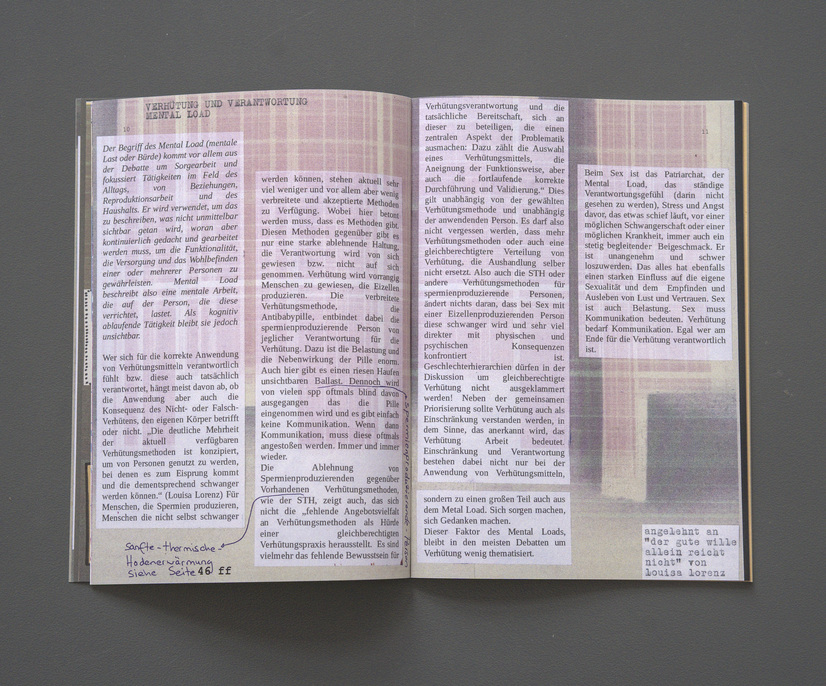 VERHÜTUNG UND VERANTWORTUNG
MENTAL LOAD
10
Der Begriff des Mental Load (mentale
Last oder Bürde) kommt vor allem aus
der Debatte um Sorgearbeit und
fokussiert Tätigkeiten im Feld des
Alltags, von Beziehungen,
Reproduktionsarbeit und des
Haushalts. Er wird verwendet, um das
zu beschreiben, was nicht unmittelbar
sichtbar getan wird, woran aber
kontinuierlich gedacht und gearbeitet
werden muss, um die Funktionalität,
die Versorgung und das Wohlbefinden
einer oder mehrerer Personen zu
gewährleisten. Mental Load
beschreibt also eine mentale Arbeit,
die auf der Person, die diese
verrichtet, lastet. Als kognitiv
ablaufende Tätigkeit bleibt sie jedoch
unsichtbar.
Wer sich für die korrekte Anwendung
von Verhütungsmitteln verantwortlich
fühlt bzw. diese auch tatsächlich
verantwortet, hängt meist davon ab, ob
die Anwendung aber auch die
Konsequenz des Nicht- oder Falsch-
Verhütens, den eigenen Körper betrifft
oder nicht. „Die deutliche Mehrheit
der aktuell verfügbaren
Verhütungsmethoden ist konzipiert,
um von Personen genutzt zu werden,
bei denen es zum Eisprung kommt
und die dementsprechend schwanger
werden können.“ (Louisa Lorenz) Für
Menschen, die Spermien produzieren,
Menschen die nicht selbst schwanger
sanfte-thermische
Hodenerwärmung
siehe Seite 46 ff
werden können, stehen aktuell sehr
viel weniger und vor allem aber wenig
verbreitete und akzeptierte Methoden
zu Verfügung. Wobei hier betont
werden muss, dass es Methoden gibt.
Diesen Methoden gegenüber gibt es
nur eine starke ablehnende Haltung,
die Verantwortung wird von sich
gewiesen bzw. nicht auf sich
genommen. Verhütung wird vorrangig
Menschen zu gewiesen, die Eizellen
produzieren. Die verbreitete
Verhütungsmethode, die
Antibabypille, entbindet dabei die
spermienproduzierende Person von
jeglicher Verantwortung für die
Verhütung. Dazu ist die Belastung und
die Nebenwirkung der Pille enorm.
Auch hier gibt es einen riesen Haufen
unsichtbaren Ballast. Dennoch wird
von vielen spp oftmals blind davon
ausgegangen das die Pille
eingenommen wird und es gibt einfach
keine Kommunikation. Wenn dann
Kommunikation, muss diese oftmals
angestoßen werden. Immer und immer
wieder.
Die Ablehnung von
Spermienproduzierenden gegenüber
Vorhandenen Verhütungsmethoden,
wie der STH, zeigt auch, das sich
nicht die „fehlende Angebotsvielfalt
an Verhütungsmethoden als Hürde
einer gleichberechtigten
Verhütungspraxis herausstellt. Es sind
vielmehr das fehlende Bewusstsein für
Verhütungsverantwortung und die
tatsächliche Bereitschaft, sich an
dieser zu beteiligen, die einen
zentralen Aspekt der Problematik
ausmachen: Dazu zählt die Auswahl
eines Verhütungsmittels, die
Aneignung der Funktionsweise, aber
auch die fortlaufende korrekte
Durchführung und Validierung.“ Dies
gilt unabhängig von der gewählten
Verhütungsmethode und unabhängig
der anwendenden Person. Es darf also
nicht vergessen werden, dass mehr
Verhütungsmethoden oder auch eine
gleichberechtigtere Verteilung von
Verhütung, die Aushandlung selber
nicht ersetzt. Also auch die STH oder
andere Verhütungsmethoden für
spermienproduzierende Personen,
ändert nichts daran, dass bei Sex mit
einer Eizellenproduzierenden Person
diese schwanger wird und sehr viel
direkter mit physischen und
psychischen Konsequenzen
konfrontiert ist.
Geschlechterhierarchien dürfen in der
Diskussion um gleichberechtigte
Verhütung nicht ausgeklammert
werden! Neben der gemeinsamen
Priorisierung sollte Verhütung auch als
Einschränkung verstanden werden, in
dem Sinne, das anerkannt wird, das
Verhütung Arbeit bedeutet.
Einschränkung und Verantwortung
bestehen dabei nicht nur bei der
Anwendung von Verhütungsmitteln,
sondern zu einen großen Teil auch aus
dem Metal Load. Sich sorgen machen,
sich Gedanken machen.
Dieser Faktor des Mental Loads,
bleibt in den meisten Debatten um
Verhütung wenig thematisiert.
11
Beim Sex ist das Patriarchat, der
Mental Load, das ständige
Verantwortungsgefühl (darin nicht
gesehen zu werden), Stress und Angst
davor, das etwas schief läuft, vor einer
möglichen Schwangerschaft oder einer
möglichen Krankheit, immer auch ein
stetig begleitender Beigeschmack. Er
ist unangenehm und schwer
loszuwerden. Das alles hat ebenfalls
einen starken Einfluss auf die eigene
Sexualität und dem Empfinden und
Ausleben von Lust und Vertrauen. Sex
ist auch Belastung. Sex muss
Kommunikation bedeuten. Verhütung
bedarf Kommunikation. Egal wer am
Ende für die Verhütung verantwortlich
ist.
angelehnt an
"der gute wille
allein reicht
nicht" von
louisa lorenz